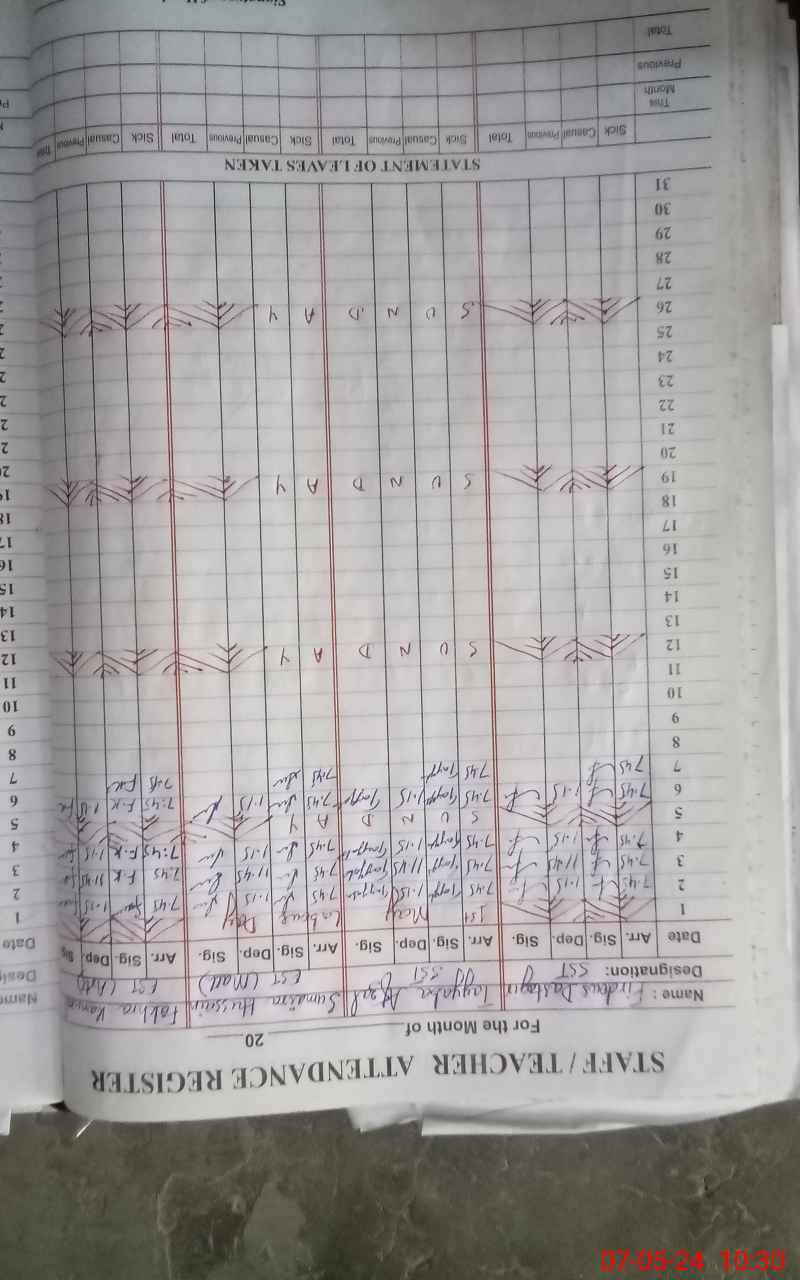 STAFF / TEACHER ATTENDANCE REGISTER
For the Month of 20
Name : Firdous Dastagir Tayyaba Afzal Sumaira Hussain Fakhra
Designation: SST SST EST (Math) EST (Arts)
Date Arr. Sig. Dep. Sig. Arr. Sig. Dep. Sig. Arr. Sig. Dep. Sig. Arr. Sig. Dep. Sig
1 1st May Labour Day
2 7.45 1.15 7.45 1.15 7.45 1.15 7.45 1.15
3 7.45 11.45 7.45 11.45 7.45 11.45 7.45 F.K 11.45
4 7.45 1.15 7.45 1.15 7.45 1.15 7:45 F.K 1.15
5 S U N D A Y
6 7.45 1.15 7.45 1.15 7.45 1.15 7:45 F.K 1.15
7 7.45 7.45 7.45 7.45 F.K
8
9
10
11
12 S U N D A Y
13
14
15
16
17
18
19 S U N D A Y
20
21
22
23
24
25
26 S U N D A Y
27
28
29
30
31
STATEMENT OF LEAVES TAKEN
Sick Casual Previous Total Sick Casual Previous Total Sick Casual Previous Total Sick Casual Previous Total
This Month
Previous
Total
07-05-24 10:30